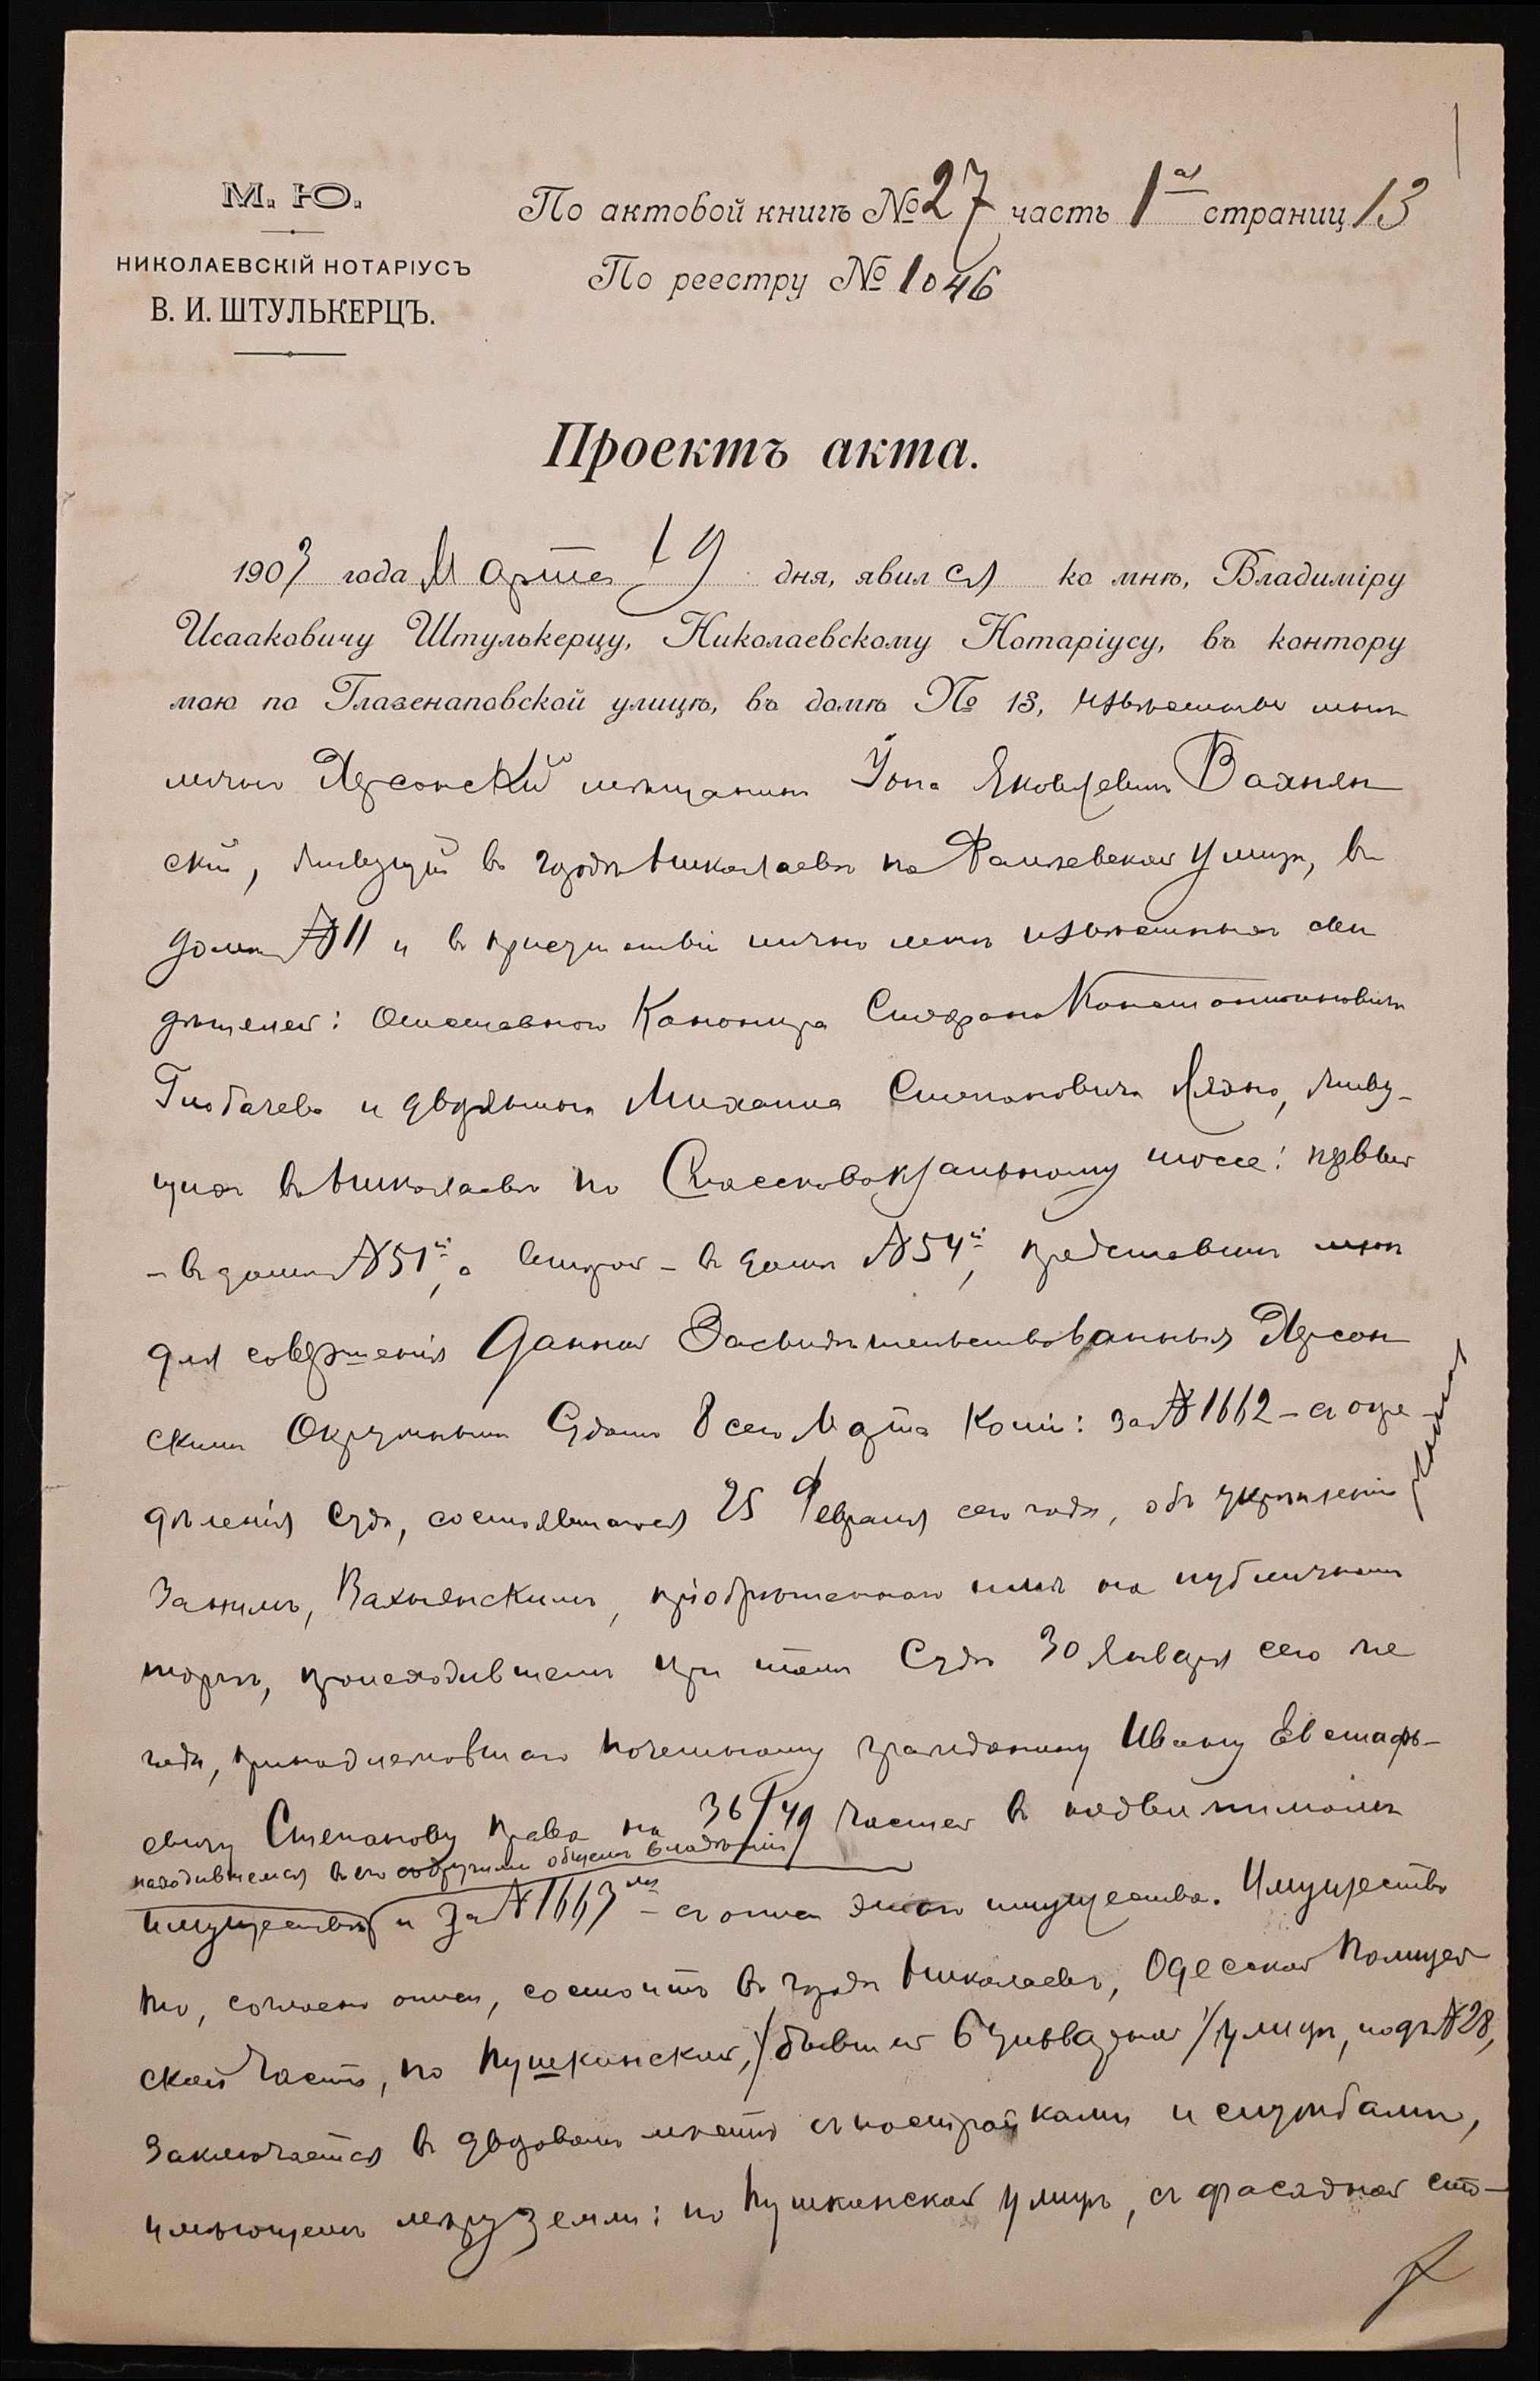 М. Ю.
НИКОЛАЕВСКІЙ НОТАРІУСЪ
В. И. ШТУЛЬКЕРЦЪ.
По актовой книгѣ № 27 часть 1ая страниц 13
По реестру № 1046
Проектъ акта.
1903 года Марта 19 дня, явился ко мнѣ, Владиміру
Исааковичу Штулькерцу, Николаевскому Нотаріусу, въ контору
мою по Глазенаповской улицѣ, въ домѣ № 13, извѣстный мнѣ
лично Херсонскій мѣщанинъ Іона Яковлевичъ Вахнян
скій, живущій въ городѣ Николаевѣ по Фалѣевской улицѣ, въ
домѣ № 11 и въ присутствіи лично мнѣ извѣстныхъ сви
дѣтелей: отставного Канонира Стефана Константиновича
и дворянина Михаила Степановича живу-
щихъ въ Николаевѣ по Спассковокзальному шоссе: первый
- въ домѣ № 51й, а второй - въ домѣ № 54й, представилъ мнѣ
для совершенія Данной засвидѣтельствованныя Херсон
скимъ Окружнымъ Судомъ 8 сего Марта копіи: за № 1662 - съ опре
дѣленія Суда, состоявшагося 25 Февраля сего года, объ укрѣпленіи
за нимъ, Вахнянскимъ, пріобрѣтеннаго имъ на публичномъ
торгѣ, происходившемъ при томъ Судѣ 30 Января сего же
года, принадлежавшаго почетному гражданину Ивану Евстафь-
евичу Степанову права на 36/49 частей въ недвижимомъ
находившемся въ его общемъ владѣніи
имуществѣ и за № 1663мъ - съ описи этого имущества. Имущество
это, согласно описи, состоитъ въ городѣ Николаевѣ, Одесской Полицей
ской части, по Пушкинской, /бывшей Бульварной/ улицѣ, подъ № 28,
заключается въ дворовомъ мѣстѣ съ постройками и службами,
имѣющемъ мѣру земли: по Пушкинской улицѣ, съ фасадной сто-